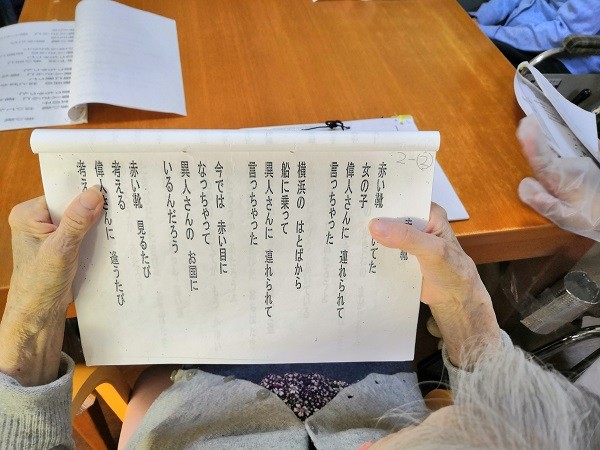 2-②
靴
赤い靴 いてた
女の子
偉人さんに 連れられて
言っちゃった
横浜の はとばから
船に乗って
異人さんに 連れられて
言っちゃった
今では 赤い目に
なっちゃって
異人さんの お国に
いるんだろう
赤い靴 見るたび
考える
偉人さんに 逢うたび
考え